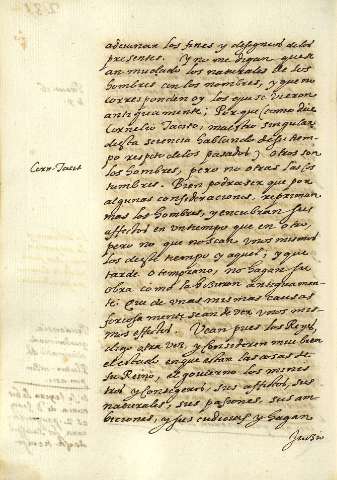 adeuinar los fines y desegnios de los
presentes. Y no me digan que se
an mudado los naturales de los
hombres con los nombres, y que no
corresponden oy los que se vieron
antiguamente; Porque (como dize
Cornelio Tacito, maestro singular
desta sciencia hablando de su tiem-
po respeto de los passados) otros son
los hombres, pero no otras las cos-
Corn. Tacit
tumbres. Bien podra ser que por
algunas consideraciones, repriman
mas los hombres, y encubran sus
affectos en un tiempo que en otro,
pero no que no sean unos mismos
los deste tiempo y aquel; y que
tarde o temprano, no hagan su
obra como la hizieron antiguamen-
te. Que de unas mismas causas
forçosamente sean de ver unos mis-
mos effectos. Vean pues los Reyes,
digo otra vez, y consideren muy bien
el estado en que estan las cosas de
su Reino, el gouierno los minis-
tros y consegeros, sus affectos, sus
naturales, sus passiones, sus am-
biciones, y sus cudicias y hagan
juizio